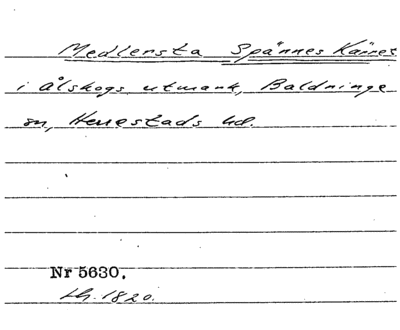 Medlersta Spännes Kärret
i Ålskogs utmark, Baldringe
sn, Herrestads hd.
Nr 5630.
LH. 1820.